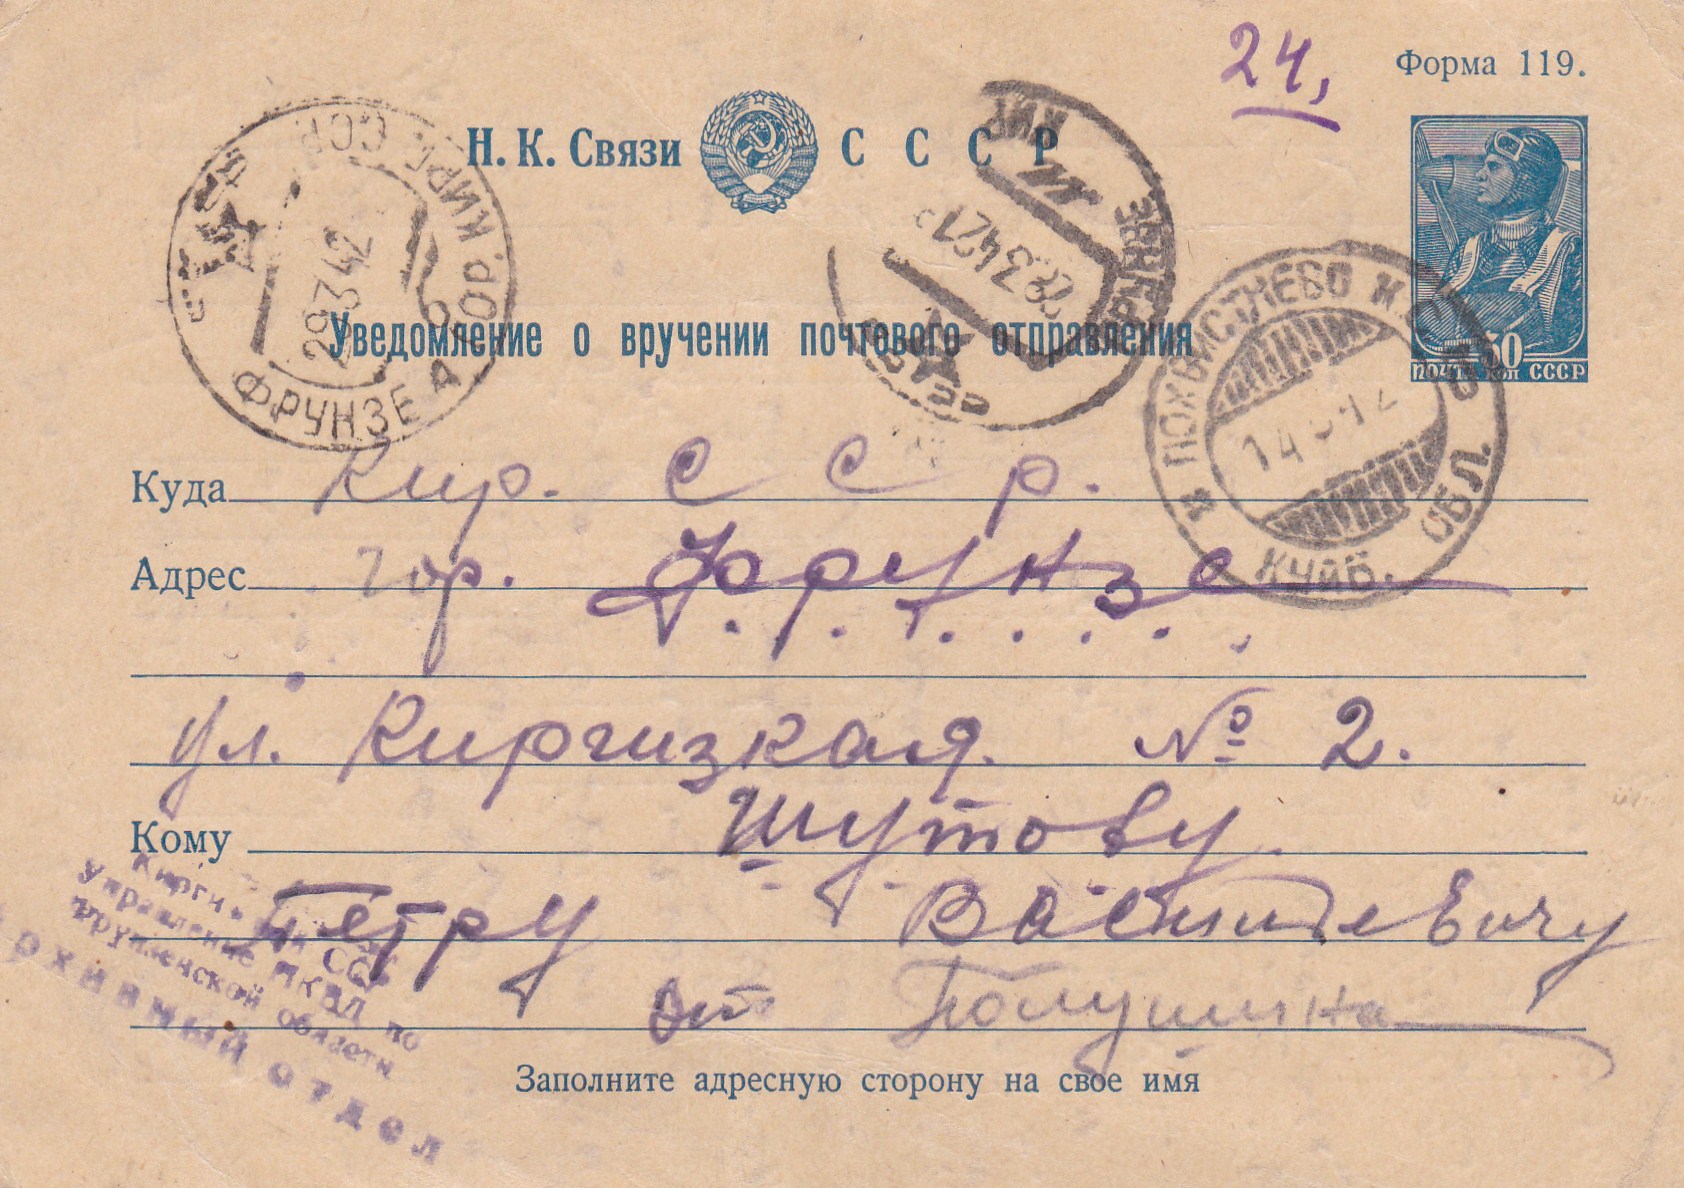 24,
Форма 119.
Н. К. Связи СССР
ПОЧТА 30 КОП СССР
Уведомление о вручении почтового отправления
ФРУНЗЕ ГОР. КИРГ. ССР
29 3 42
ФРУНЗЕ КИРГ ССР
3 42 21
ПОХВИСТНЕВО КУЙБ. ОБЛ.
14 3 42
Куда Кир. С С р.
Адрес гор. Фрунзе
ул. Киргизкая. № 2.
Кому Шутову
Петру Васильевичу
от Полушина
Управление НКВД по
Фрунзенской области
Архивный отдел
Заполните адресную сторону на свое имя